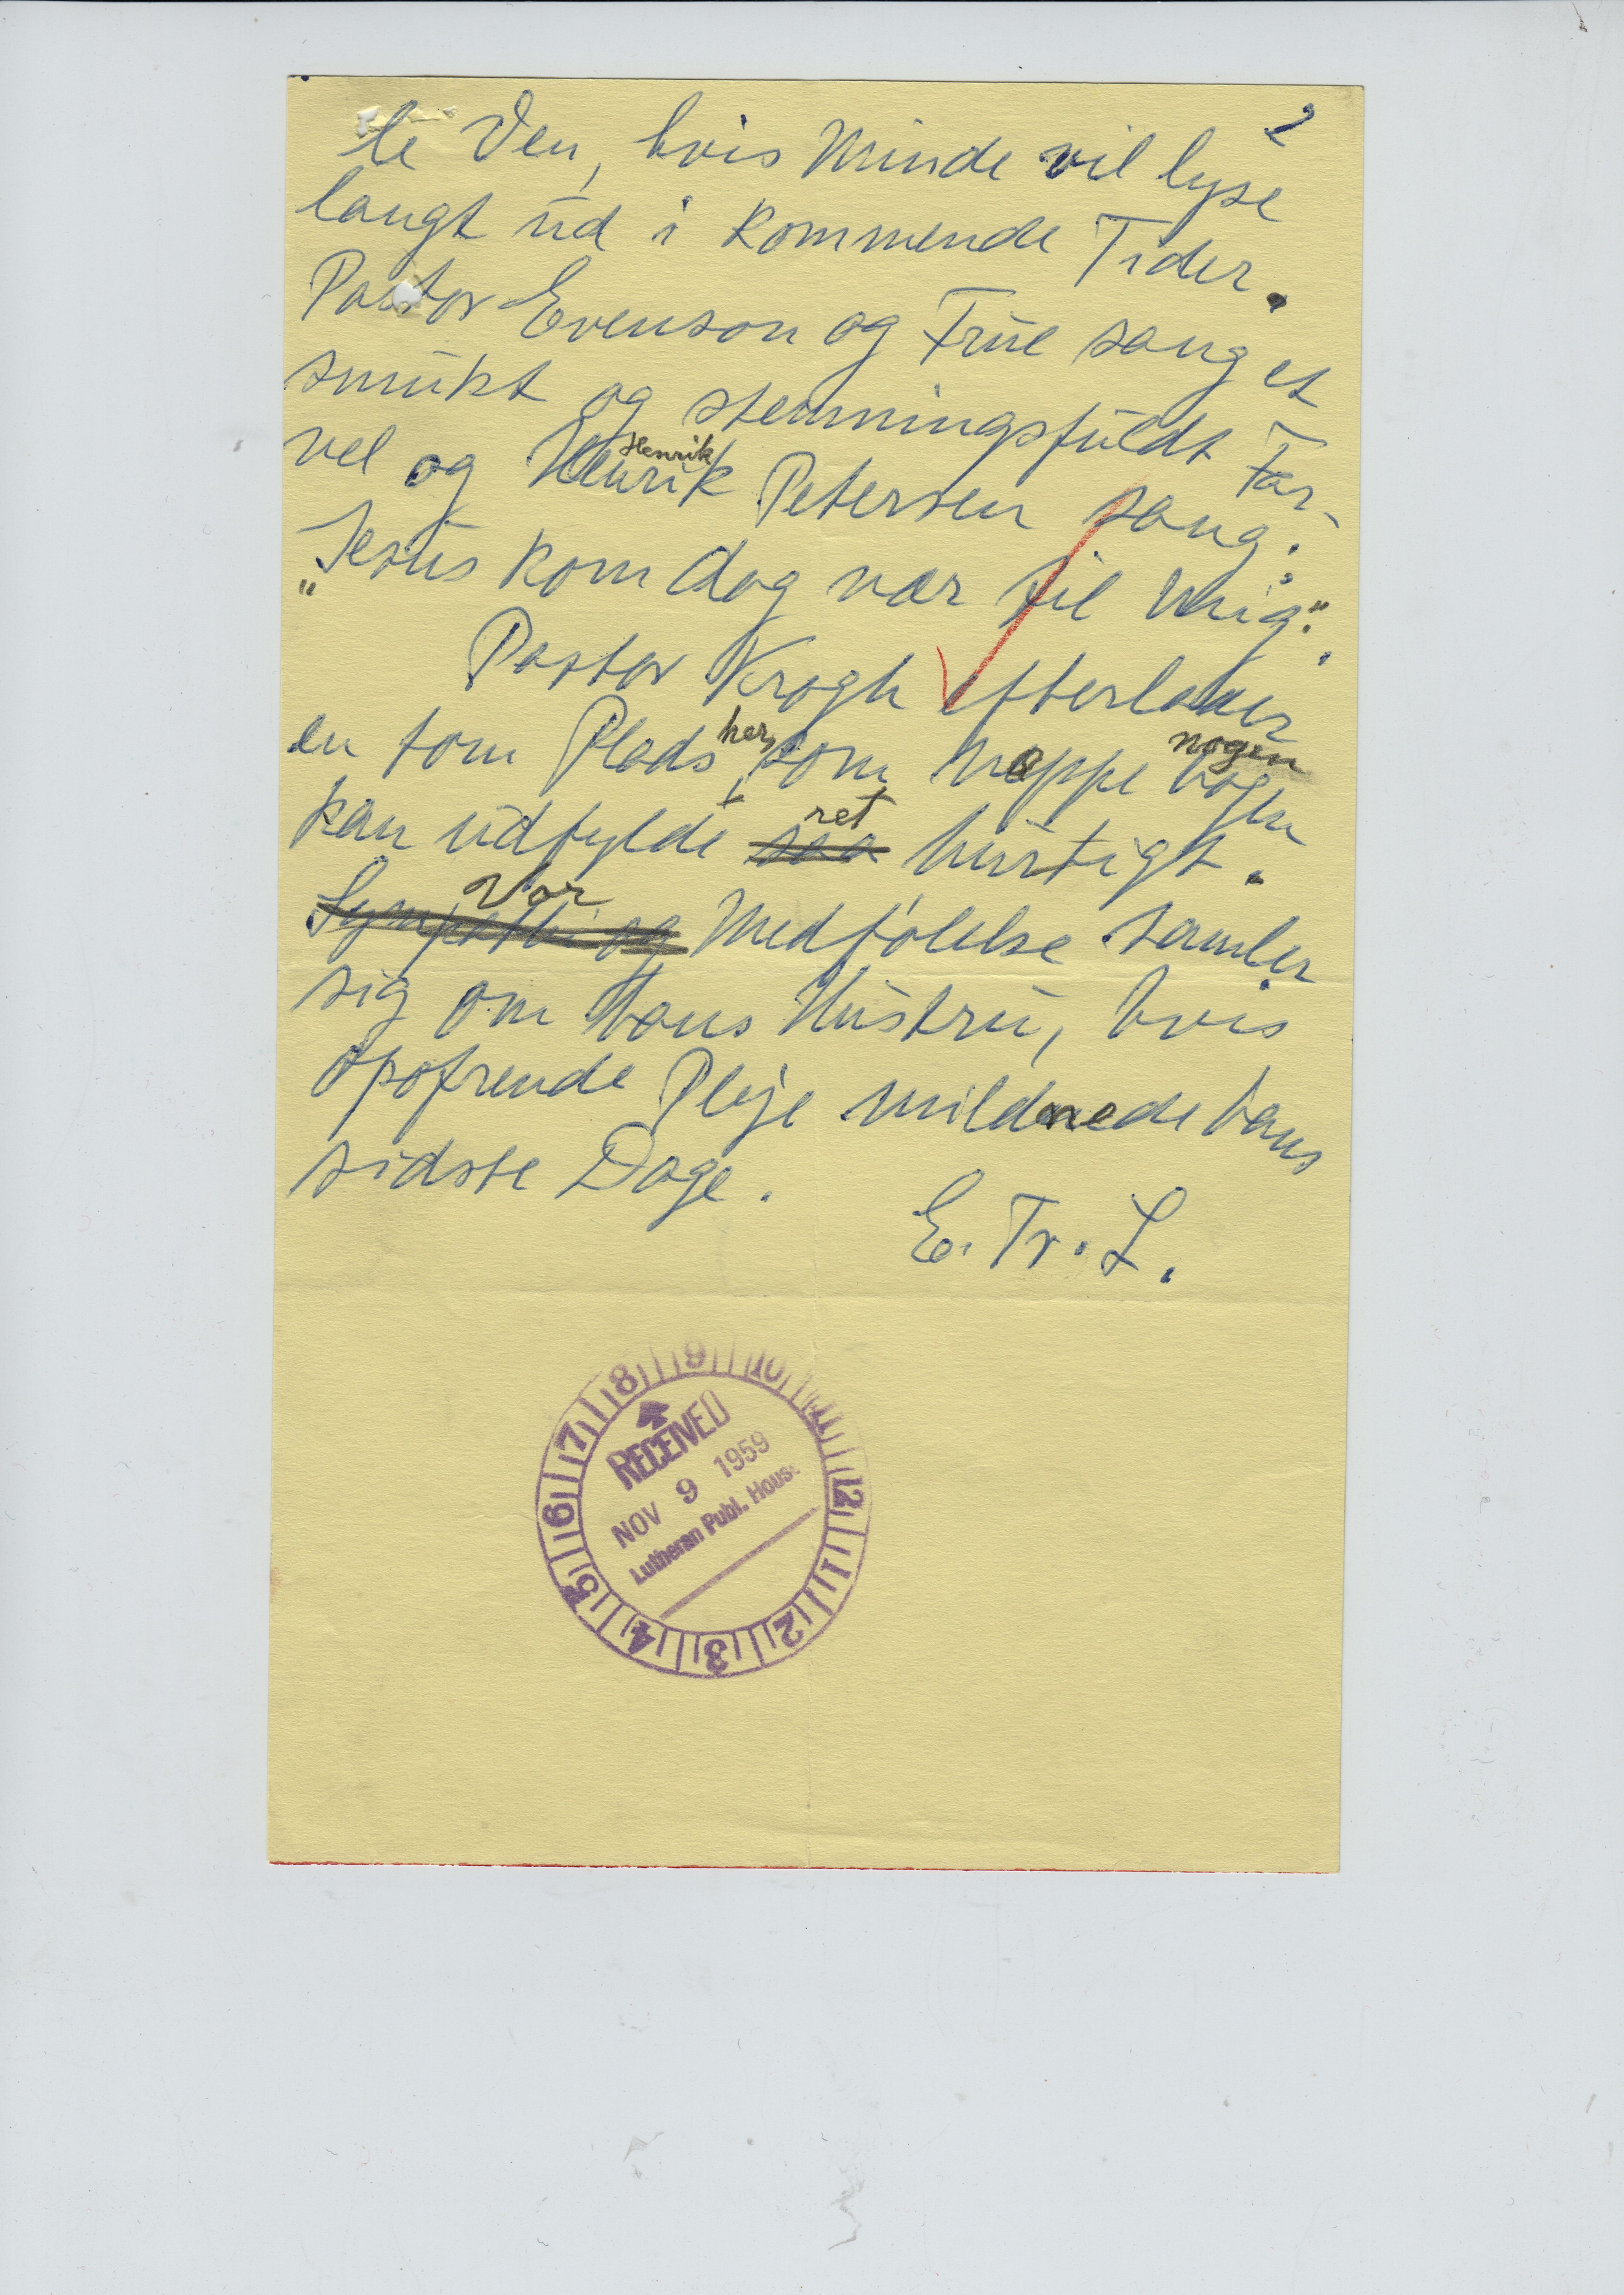 2
te Ven, hvis Minde vil lyse
langt ud i kommende Tider.
Pastor Evenson og Frue sang et
smukt og stemningsfuldt Far-
Henrik
vel og Henrik Petersen sang:
"Jesus kom dog nær til mig".
Pastor Krogh efterlader
her, nogen
en tom Plads, som næppe nogen
ret
kan udfylde saa hurtigt.
Vor
Sympathi og Medfølelse samler
sig om hans Hustru, hvis
opofrende Pleje mildnede hans
sidste Dage.
E. Tr. L.
8 9 10 11 12 1 2 3 4 5 6 7
RECEIVED
NOV 9 1959
Lutheran Publ. House